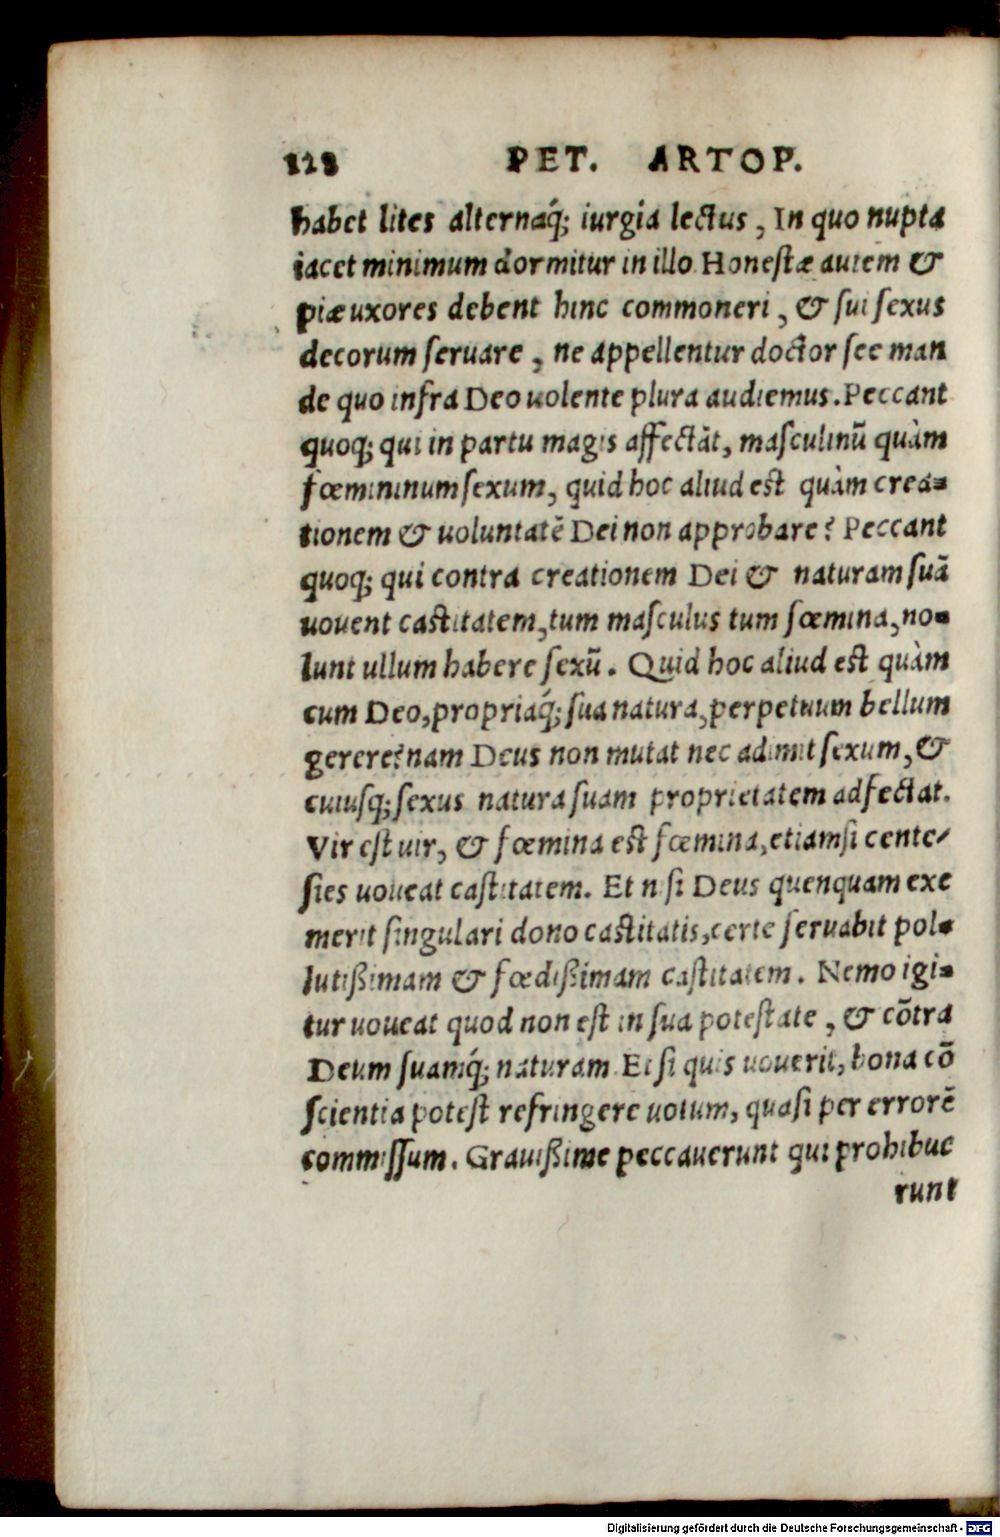 128 PET. ARTOP.
habet lites alternaq́; iurgia lectus, In quo nupta
iacet minimum dormitur in illo Honestæ autem &
piæ uxores debent hinc commoneri, & sui sexus
decorum seruare, ne appellentur doctor see man
de quo infra Deo uolente plura audiemus. Peccant
quoq; qui in partu magis affectãt, masculinũ quàm
fœmininum sexum, quid hoc aliud est quàm crea=
tionem & uoluntatẽ Dei non approbare? Peccant
quoq; qui contra creationem Dei & naturam suã
uouent castitatem, tum masculus tum fœmina, no=
lunt ullum habere sexũ. Quid hoc aliud est quàm
cum Deo, propriaq́; sua natura, perpetuum bellum
gerere? nam Deus non mutat nec adimit sexum, &
cuiusq; sexus natura suam proprietatem adfectat.
Vir est uir, & fœmina est fœmina, etiamsi cente/
sies uoueat castitatem. Et nisi Deus quenquam exe
merit singulari dono castitatis, certe seruabit pol=
lutißimam & fœdißimam castitatem. Nemo igi=
tur uoueat quod non est in sua potestate, & cõtra
Deum suamq́; naturam Et si quis uouerit, bona cõ
scientia potest refringere uotum, quasi per errorẽ
commissum. Grauißime peccauerunt qui prohibue
runt
Digitalisierung gefördert durch die Deutsche Forschungsgemeinschaft - DFG